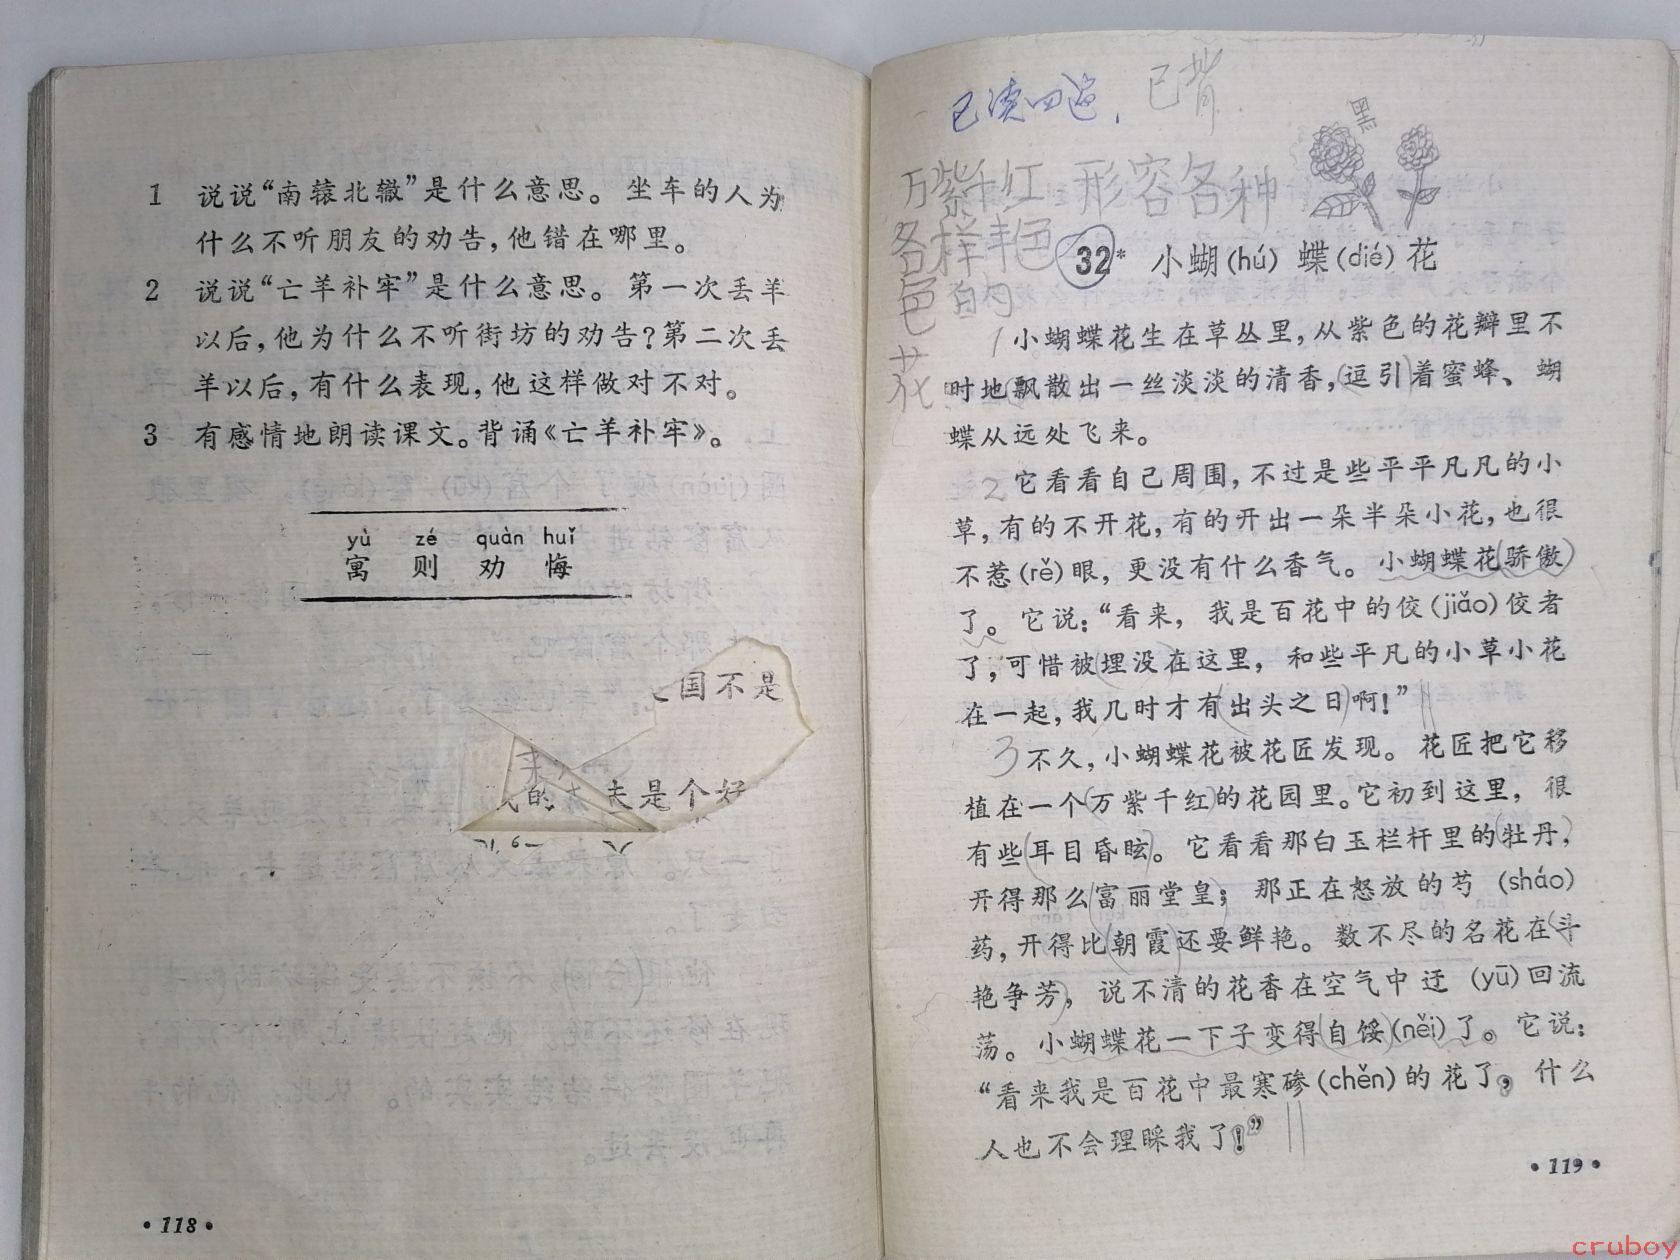 1 说说“南辕北辙”是什么意思。坐车的人为
什么不听朋友的劝告，他错在哪里。
2 说说“亡羊补牢”是什么意思。第一次丢羊
以后，他为什么不听街坊的劝告？第二次丢
羊以后，有什么表现，他这样做对不对。
3 有感情地朗读课文。背诵《亡羊补牢》。
yù zé quàn huǐ
寓 则 劝 悔
国不是
夫是个好
·118·
已读四遍，已背.
黑
万紫千红 形容各种
各样丰色
色
花
32* 小蝴(hú)蝶(dié)花
1小蝴蝶花生在草丛里，从紫色的花瓣里不
时地飘散出一丝淡淡的清香，逗引着蜜蜂、蝴
蝶从远处飞来。
2它看看自己周围，不过是些平平凡凡的小
草，有的不开花，有的开出一朵半朵小花，也很
不惹(rě)眼，更没有什么香气。小蝴蝶花骄傲
了。它说：“看来，我是百花中的佼(jiǎo)佼者
了，可惜被埋没在这里，和些平凡的小草小花
在一起，我几时才有出头之日啊！”
3不久，小蝴蝶花被花匠发现。花匠把它移
植在一个万紫千红的花园里。它初到这里，很
有些耳目昏眩。它看看那白玉栏杆里的牡丹，
开得那么富丽堂皇；那正在怒放的芍(sháo)
药，开得比朝霞还要鲜艳。数不尽的名花在斗
艳争芳，说不清的花香在空气中迂(yū)回流
荡。小蝴蝶花一下子变得自馁(něi)了。它说：
“看来我是百花中最寒碜(chěn)的花了，什么
人也不会理睬我了！”
·119·
cruboy